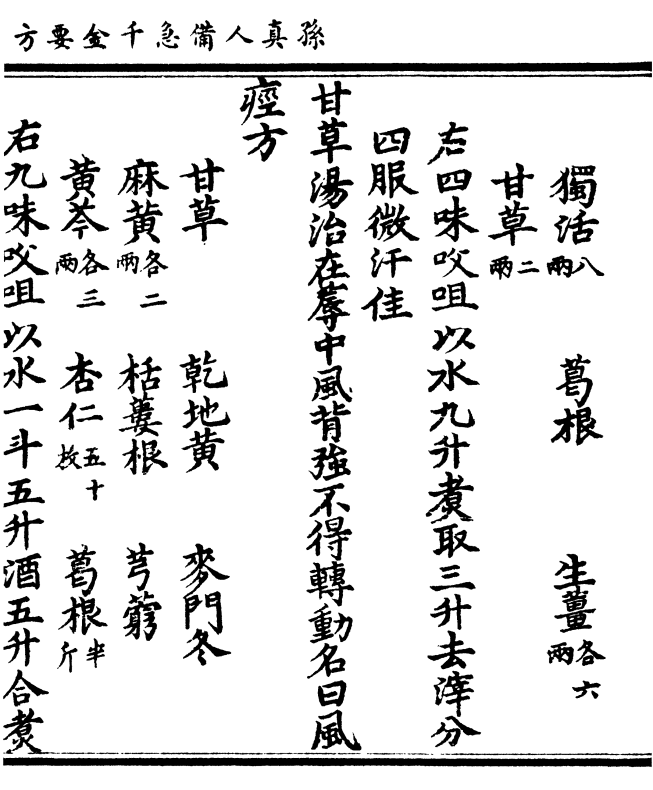 孫真人備急千金要方
獨活八兩 葛根 生薑各六兩
甘草二兩
右四味㕮咀以水九升煑取三升去滓分
四服微汗佳
甘草湯治在蓐中風背強不得轉動名曰風
痙方
甘草 乾地黃 麥門冬
麻黃各二兩 栝蔞根 芎藭
黃芩各三兩 杏仁五十枚 葛根半斤
右九味㕮咀以水一斗五升酒五升合煑